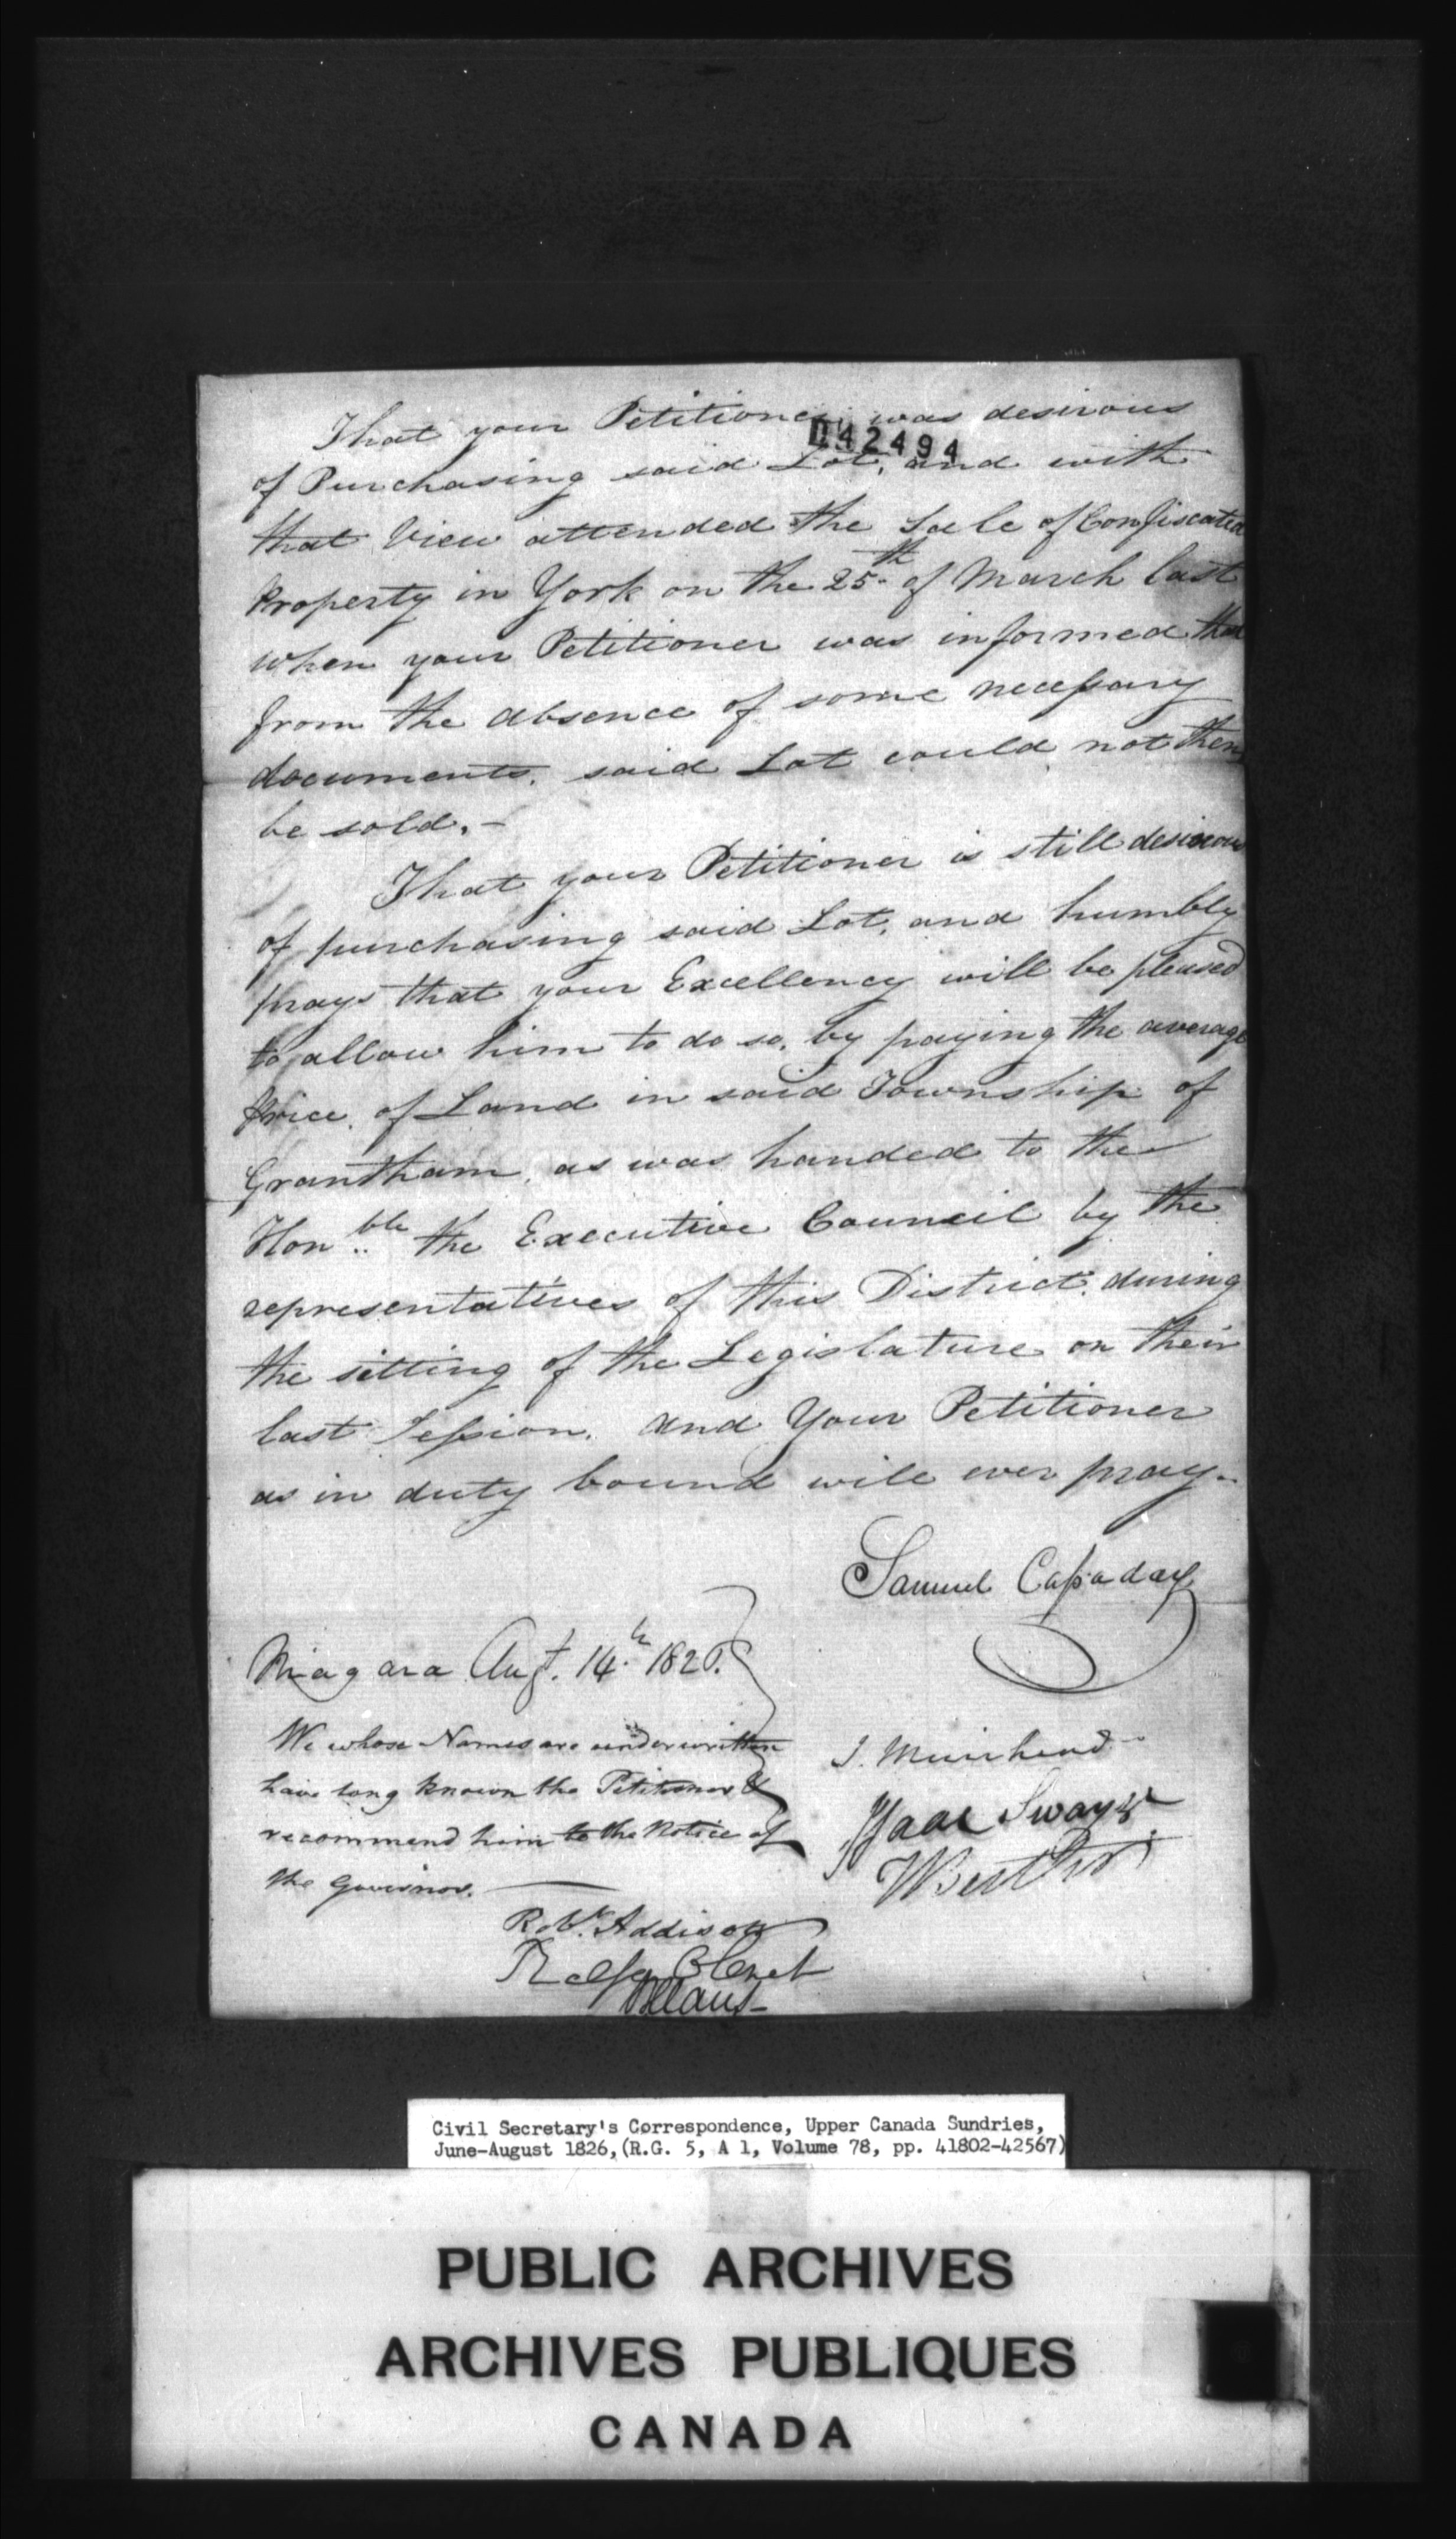 042494
That your Petitioner was desirous
of Purchasing said Lot, and with
that View attended the Sale of Confiscated
Property in York on the 25th of March last
when your Petitioner was informed that
from the absence of some necessary
documents, said Lot could not then
be sold. –
That your Petitioner is still desirous
of purchasing said Lot, and humbly
prays that your Excellency will be pleased
to allow him to do so, by paying the average
price of Land in said Township of
Grantham, as was handed to the
Honble the Executive Council by the
representatives of this District, during
the sitting of the Legislature on their
last Session. And Your Petitioner
as in duty bound will ever pray.
Samuel Cassaday
Niagara Augt. 14th 1826.
We whose Names are underwritten
have long known the Petitioner &
recommend him to the Notice of
the Governor.
J. Muirhead
Isaac Swayze
Robt. Addison
Ralfe Clench
Civil Secretary's Correspondence, Upper Canada Sundries,
June-August 1826, (R.G. 5, A 1, Volume 78, pp. 41802-42567)
PUBLIC ARCHIVES
ARCHIVES PUBLIQUES
CANADA